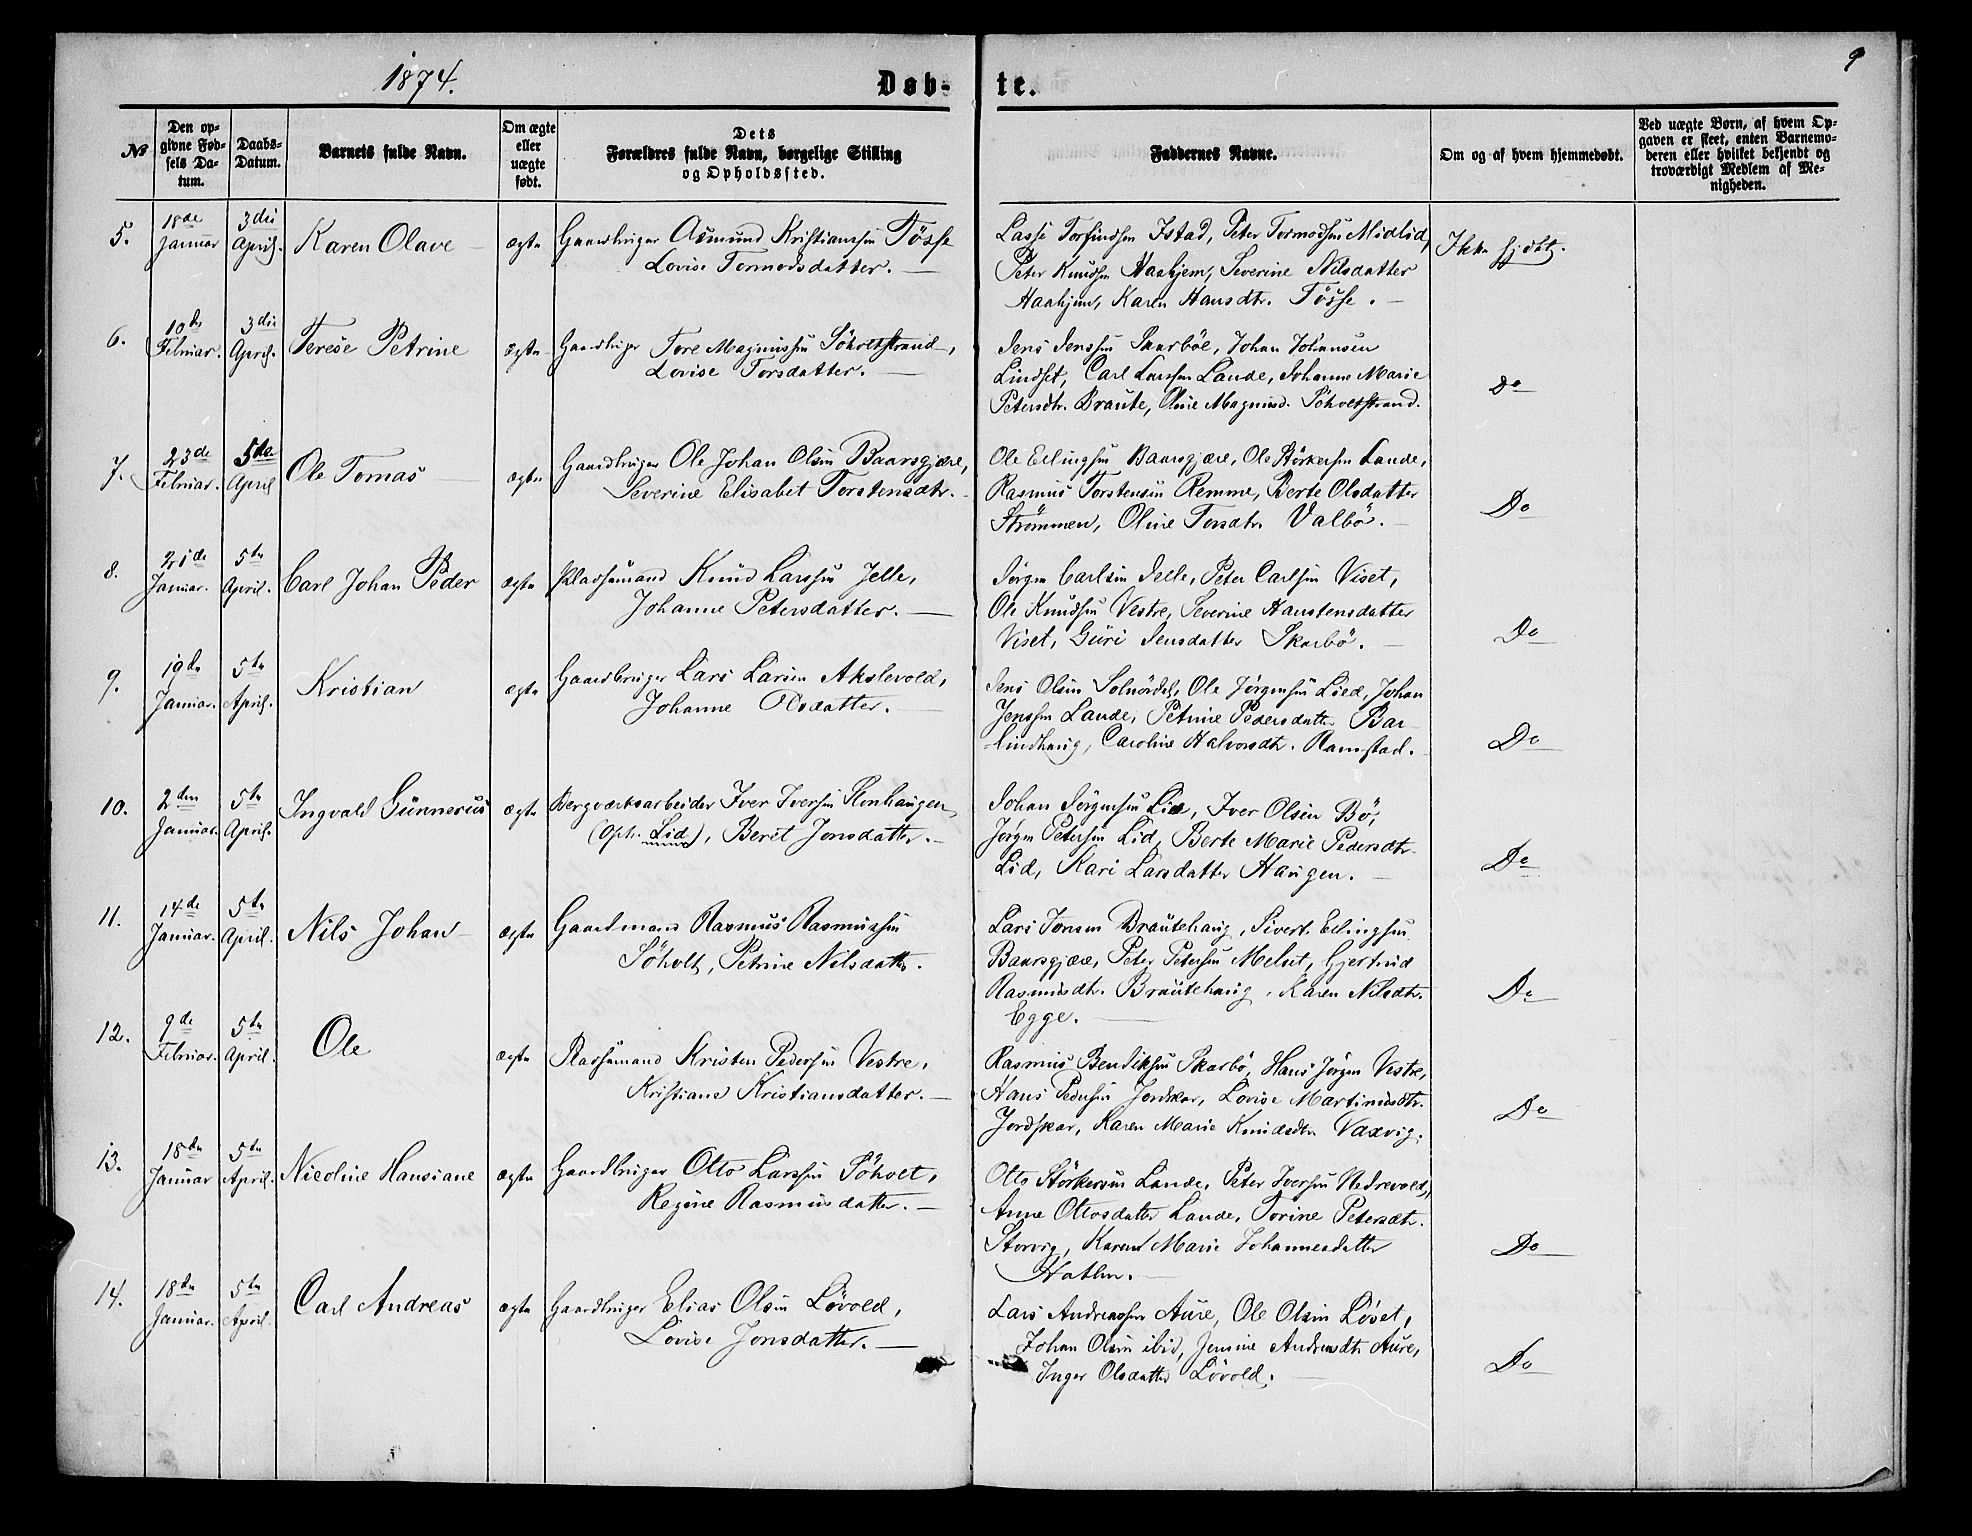 1874.
Døb-
te.
9
№
Den op-
givne Fød-
sels Da-
tum.
Daabs-
Datum.
Barnets fulde Navn.
Om ægte
eller
uægte
født.
Dets
Forældres fulde Navn, borgelige Stilling
og Opholdssted.
Faddernes Navne.
Om og af hvem hjemmedøbt.
Ved uægte Børn, af hvem Op-
gaven er skeet, enten Barnemo-
deren eller hvilket bekjendt og
troværdigt Medlem af Me-
nigheden.
5.
18de
Januar
3die
April.
Karen Olave
ægte
Gaardbruger Asmund Kristianssen Tösse
Lovise Tormodsdatter.
Lasse Torfindsen Istad, Peter Tormodsen Midlid,
Peter Knudsen Haahjem, Severine Nilsdatter
Haahjem, Karen Hansdtr. Tösse.
Ikke hjdbt.
6.
10de
Februar.
3die
April.
Terese Petrine
ægte
Gaardbruger Tore Magnussen Söholtstrand,
Lovise Torsdatter.
Jens Jenssen Skarböe, Johan Johansen
Lindset, Carl Larssen Lande, Johanne Marie
Petersdtr. Braute, Oline Magnusd. Söholtstrand.
Do
7.
23de
Februar.
5te
April
Ole Tomas
ægte
Gaardbruger Ole Johan Olsen Baarsgjære,
Severine Elisabet Torstensdtr.
Ole Erlingsen Baarsgjære, Ole Störkersen Lande,
Rasmus Torstensen Remme, Berte Olsdatter
Strömmen, Oline Torsdtr. Valbö.
Do
8.
21de
Januar.
5te
April.
Carl Johan Peder
ægte
Pladsemand Knud Larssen Jelle,
Johanne Petersdatter.
Jørgen Carlsen Jelle, Peter Carlsen Viset,
Ole Knudsen Vestre, Severine Haustensdatter
Viset, Guri Jensdatter Skarbö.
Do
9.
19de
Januar.
5te
April.
Kristian
ægte
Gaardbruger Lars Larsen Akslevold,
Johanne Olsdatter.
Jens Olsen Solnördal, Ole Jørgensen Lied, Johan
Jenssen Lande, Petrine Pedersdatter Bar-
-lindhaug, Caroline Halvorsdtr. Ramstad.
Do
10.
2den
Januar.
5te
April.
Ingvald Gunnerus
ægte
Bergværksarbeider Iver Iversen Stenhaugen
(Oph. Lid), Beret Jonsdatter.
Johan Jørgensen Lid, Iver Olsen Bö,
Jørgen Petersen Lid, Berte Marie Pedersdtr
Lid, Kari Larsdatter Haugen.
Do
11.
14de
Januar.
5te
April.
Nils Johan
ægte
Gaardmand Rasmus Rasmussen
Söholt, Petrine Nilsdatter.
Lars Jonsen Brautehaug, Sivert Erlingsen
Baarsgjære, Peter Petersen Melset, Gjertrud
Rasmusdtr. Brautehaug, Karen Nilsdtr.
Egge.
Do
12.
9de
Februar.
5te
April.
Ole
ægte
Pladsemand Kristen Pedersen Vestre,
Kristiane Kristiansdatter.
Rasmus Bendiksen Skarbö, Hans Jörgen Vestre,
Hans Pedersen Jordskar, Lovise Martinusdtr.
Jordskar, Karen Marie Knudsdtr. Vaxvig.
Do
13.
18de
Januar
5te
April.
Nicoline Hansiane
ægte
Gaardbruger Otto Larssen Söholt,
Regine Rasmusdatter.
Otto Störkersen Lande, Peter Iversen Nedrevold,
Anne Ottosdatter Lande, Torine Petersdtr.
Storvig, Karen Marie Johannesdatter
Hatlen.
Do
14.
18de
Januar.
5te
April.
Carl Andreas
ægte
Gaardbruger Elias Olsen Lövold,
Lovise Jonsdatter.
Lars Andreassen Aure, Ole Olsen Löset,
Johan Olsen ibid, Jensine Andreasdtr. Aure,
Inger Olsdatter Lövold.
Do